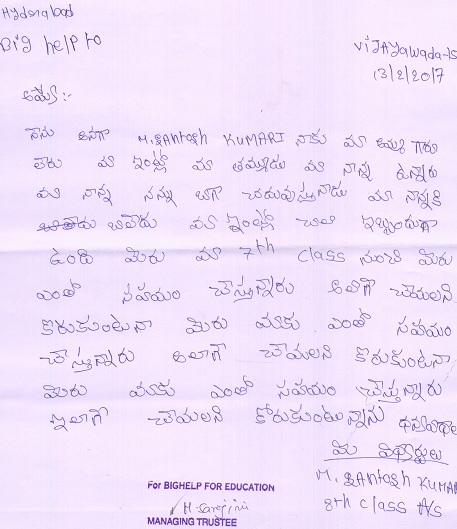 Hyderabad
Big help to
Vijayawada-15
13/2/2017
నేను అనగా M. SANtosh KUMARI నాకు మా అమ్మ గారు
లేరు మా ఇంట్లో మా తమ్ముడు మా నాన్న ఉన్నారు
మా నాన్న నన్ను బాగా చదువుస్తునాడు మా నాన్నకి
మా ఇంట్లో చాలా ఇబ్బందుగా
ఉండి మీరు మా 7th class నుంచి మీరు
ఎంతో సహయం చేస్తున్నారు అలాగే చేయలని
కొరుకుంటునా మీరు మాకు ఎంతో సహయం
చేస్తున్నారు అలాగే చేయలని కొరుకుంటునా
మీరు మాకు ఎంతో సహయం చేస్తున్నారు
ఇలాగే చేయలని కోరుకుంటున్నాను
మీ
M. SANtosh KUMAR
8th class A/s
For BIGHELP FOR EDUCATION
M. Sarojini
MANAGING TRUSTEE